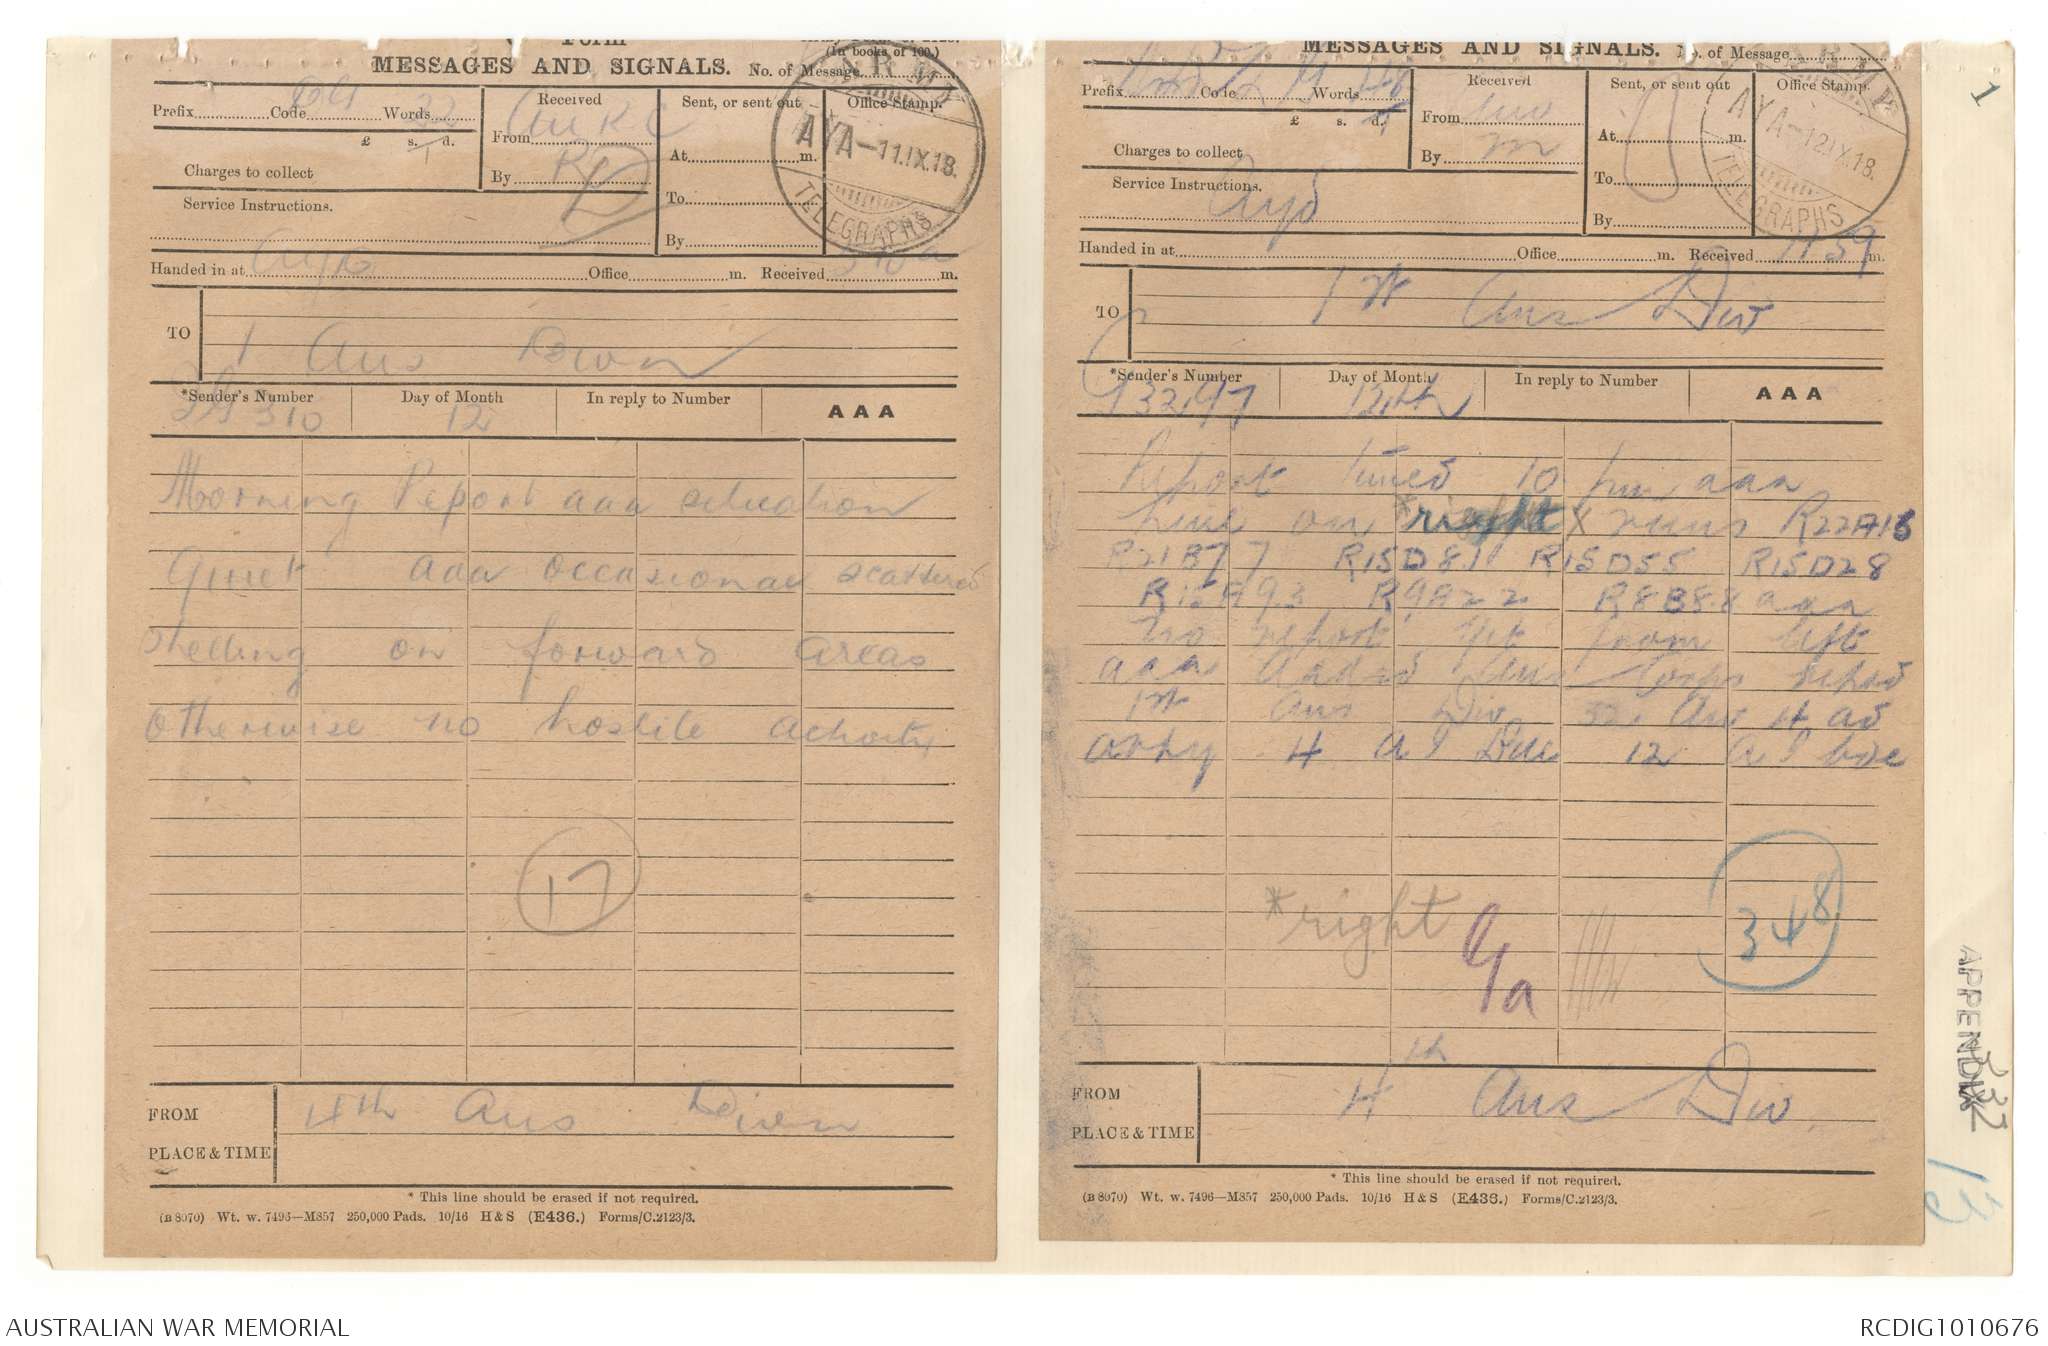 Form
(In books of 100.)
MESSAGES AND SIGNALS. No. of Message
Prefix Code Words 32
£ s. d.
Charges to collect
Service Instructions.
Received
From
By
Sent, or sent out
At m.
To
By
Office Stamp.
ARMY
AYA-11.IX.18.
TELEGRAPHS
Handed in at Office m. Received m.
TO
1 Aus Divn
*Sender's Number Day of Month In reply to Number AAA
310 12
Morning Report aaa situation
Quiet aaa occasional scattered
shelling on forward areas
otherwise no hostile activity
17
FROM
4th Aus Divn
PLACE & TIME
* This line should be erased if not required.
(B 8070) Wt. w. 7496—M857 250,000 Pads. 10/16 H & S (E436.) Forms/C.2123/3.
MESSAGES AND SIGNALS. No. of Message
Prefix Code Words
£ s. d.
Charges to collect
Service Instructions.
Received
From
By
Sent, or sent out
At m.
To
By
Office Stamp.
ARMY
AYA-12.IX.18.
TELEGRAPHS
Handed in at Office m. Received 11 59 m.
TO
1st Aus Div
*Sender's Number Day of Month In reply to Number AAA
G3297 12th
Report timed 10 pm aaa
Line on *right X runs R22A16
R21B77 R15D81 R15D55 R15D28
R15A93 R9A22 R8B88 aaa
no report yet from left
aaa Aadsd Aus Corps repsd
1st Aus Div Aus H ad
arty 4 A I Bde 12 A I bde
*right
G/a
348
FROM
4th Aus Div
PLACE & TIME
* This line should be erased if not required.
(B 8070) Wt. w. 7496—M857 250,000 Pads. 10/16 H & S (E436.) Forms/C.2123/3.
1
APPENDIX
13
AUSTRALIAN WAR MEMORIAL
RCDIG1010676